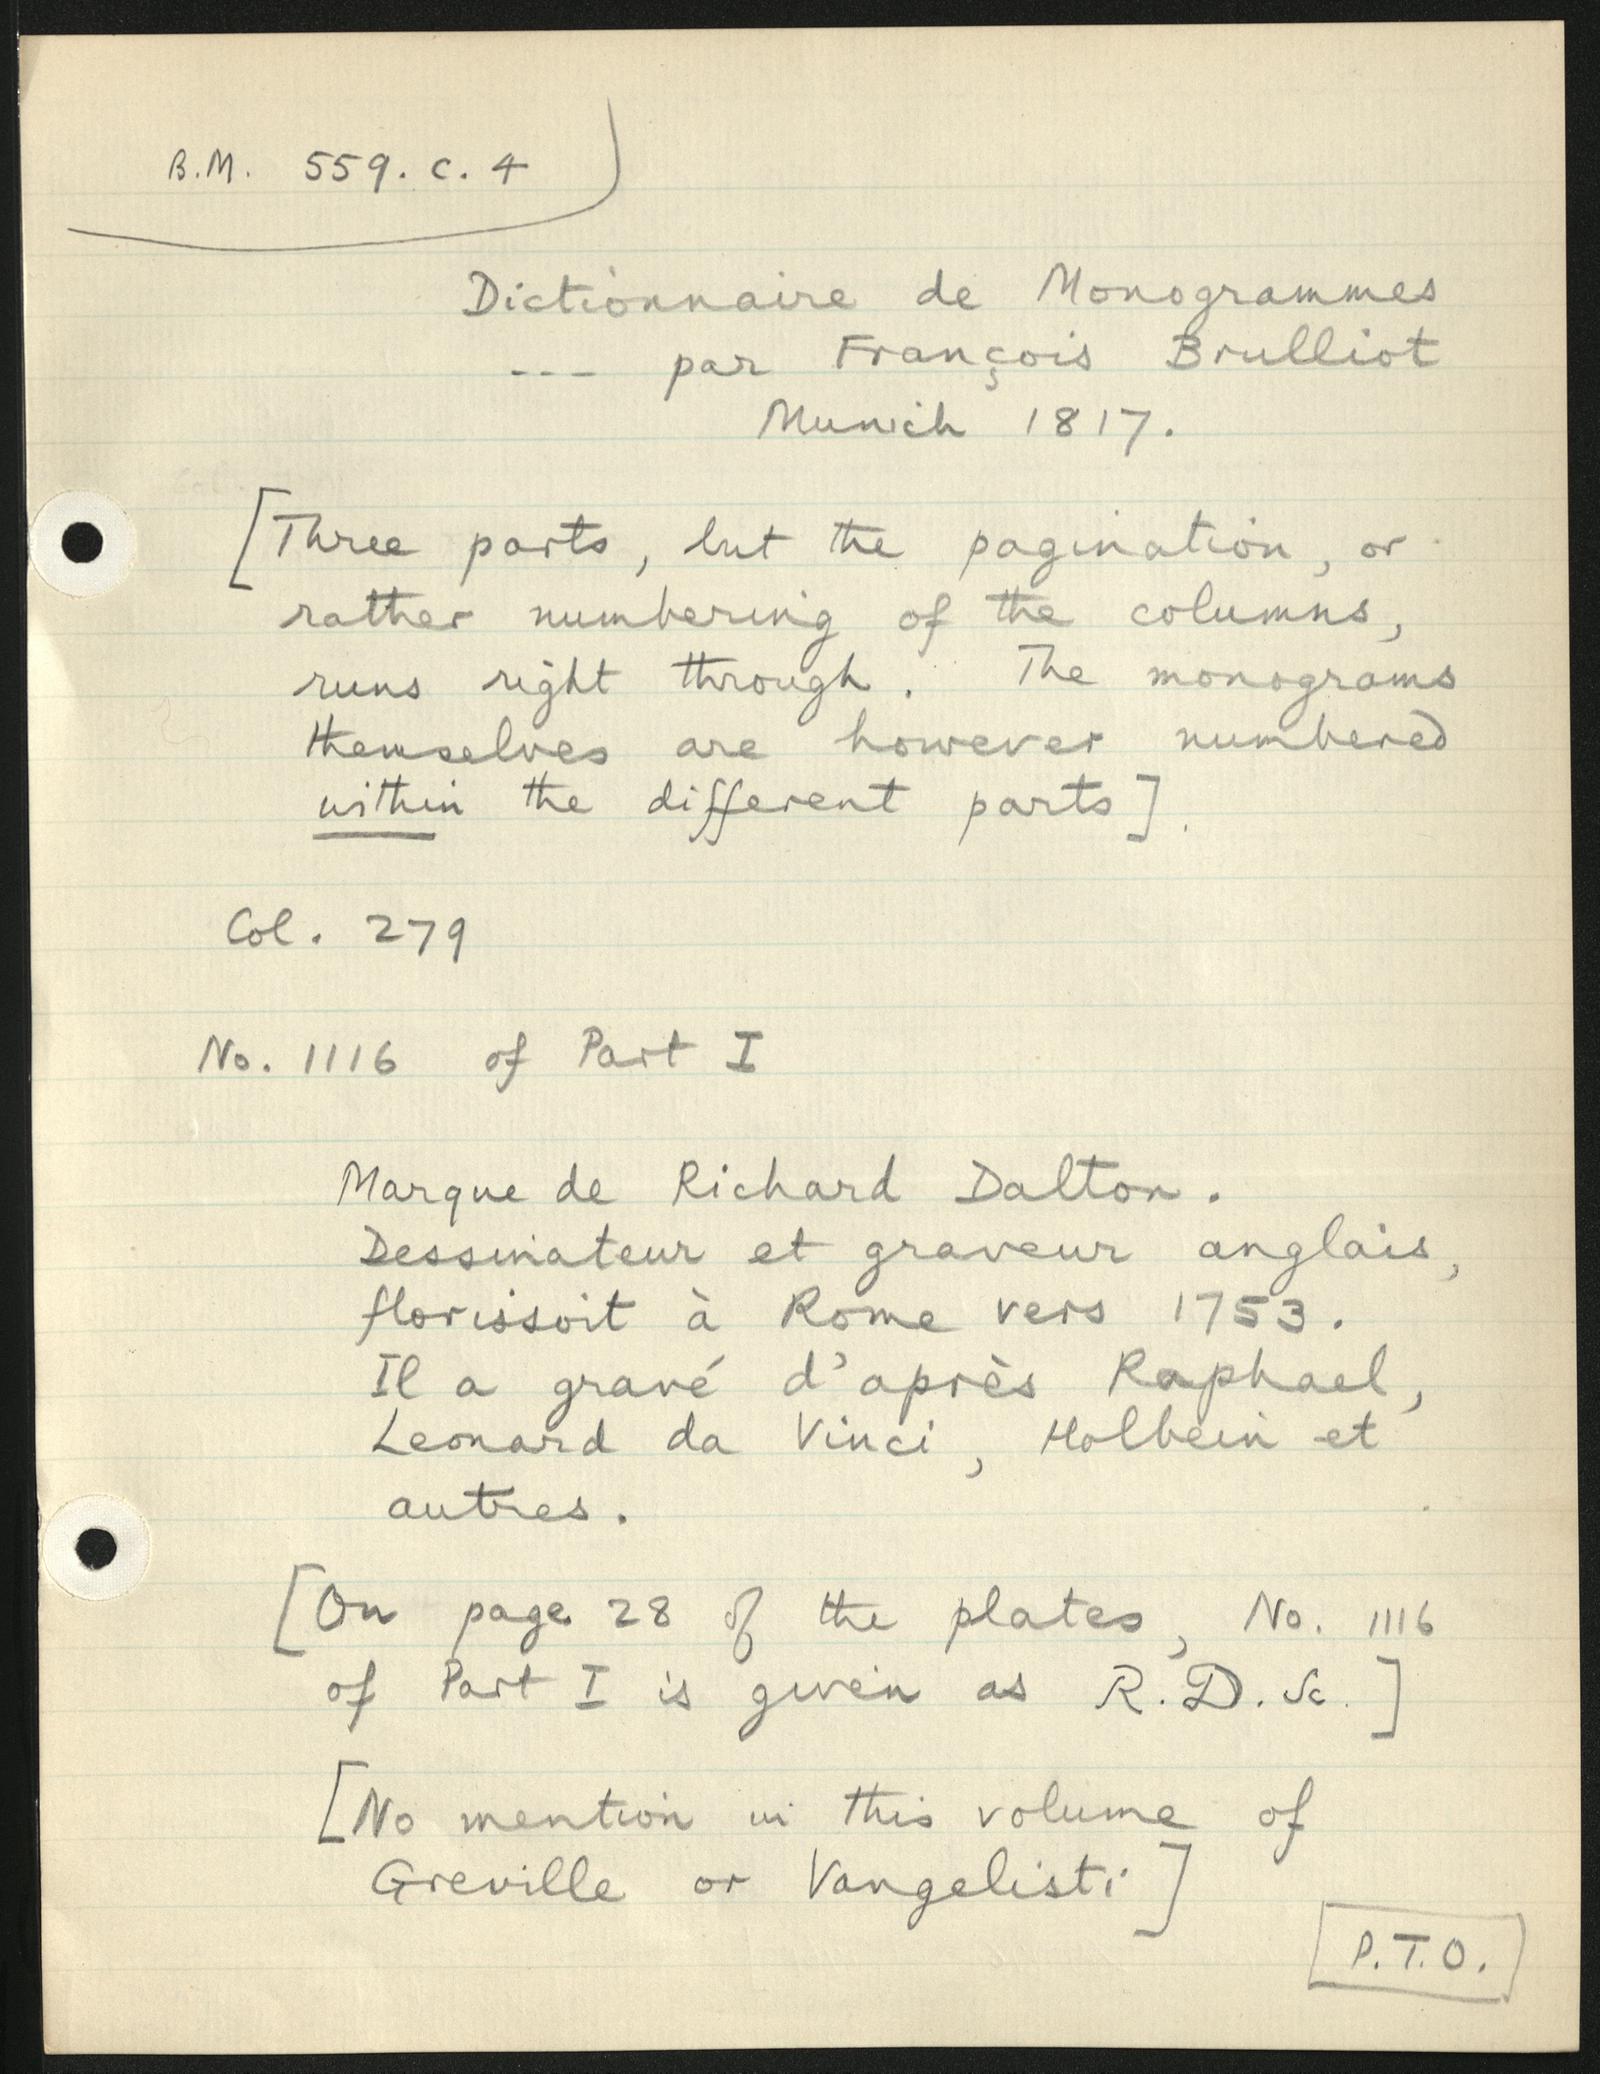 B.M. 559. c. 4
Dictionnaire de Monogrammes
--- par François Brulliot
Munich 1817.
[Three parts, but the pagination, or
rather numbering of the columns,
runs right through. The monograms
themselves are however numbered
within the different parts].
Col. 279
No. 1116 of Part I
Marque de Richard Dalton.
Dessinateur et graveur anglais,
florissoit à Rome vers 1753.
Il a gravé d'après Raphael,
Leonard da Vinci, Holbein et
autres.
[On page 28 of the plates, No. 1116
of Part I is given as R. D. sc.]
[No mention in this volume of
Greville or Vangelisti]
P.T.O.